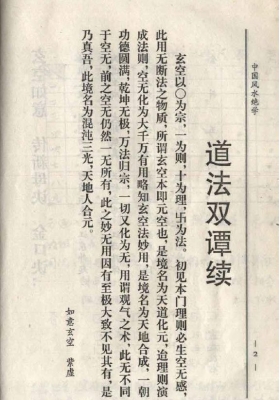 中国风水绝学
— 2 —
道法双谭续
玄空以〇为宗，一为则，十为理，卐为法。初见本门理则必生空无感，
此用无断法之物质，所谓玄空本即元空也，是境名为天道化元，迨理则演
成法则，空无化为大千万有用略知玄空法妙用，是境名为天地合成，一朝
功德圆满，乾坤无极，万法归宗，一切又化为无，用谓观气之术，此无不同
于空无，前之空无仍然一无所有，此之妙无用因有至极大致不见其有，是
乃真吾，此境名为混沌三光，天地人合元。
如意玄空 紫虚